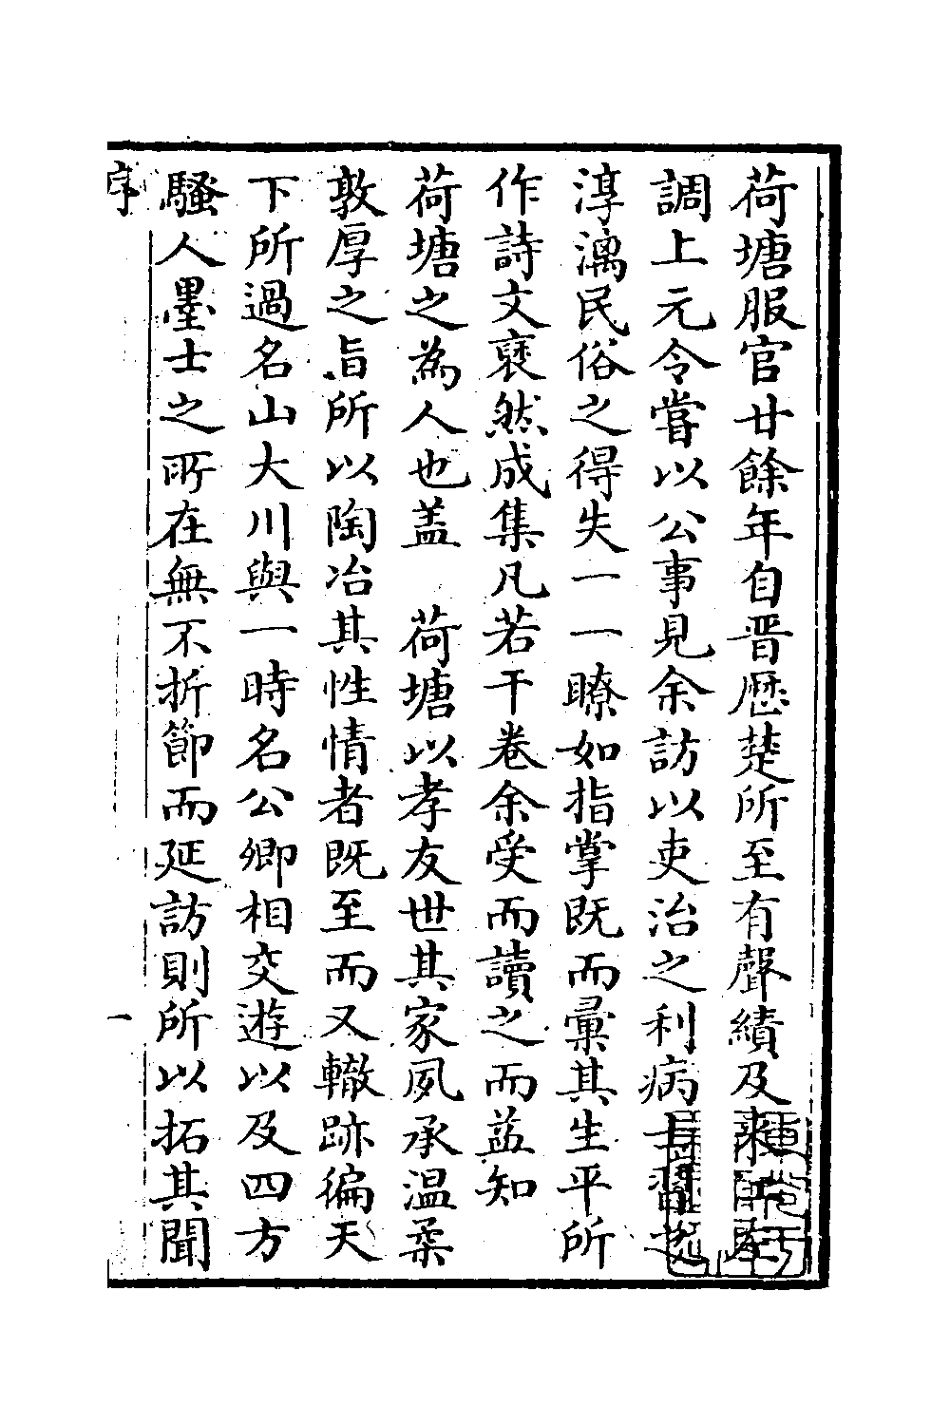 荷塘服官廿餘年自晋歷楚所至有聲績及來
調上元令嘗以公事見余訪以吏治之利病士習之
淳漓民俗之得失一一瞭如指掌既而彙其生平所
作詩文裒然成集凡若干卷余受而讀之而益知
荷塘之為人也盖 荷塘以孝友世其家夙承温柔
敦厚之旨所以陶冶其性情者既至而又轍跡徧天
下所過名山大川與一時名公卿相交遊以及四方
騷人墨士之所在無不折節而延訪則所以拓其聞
序
一